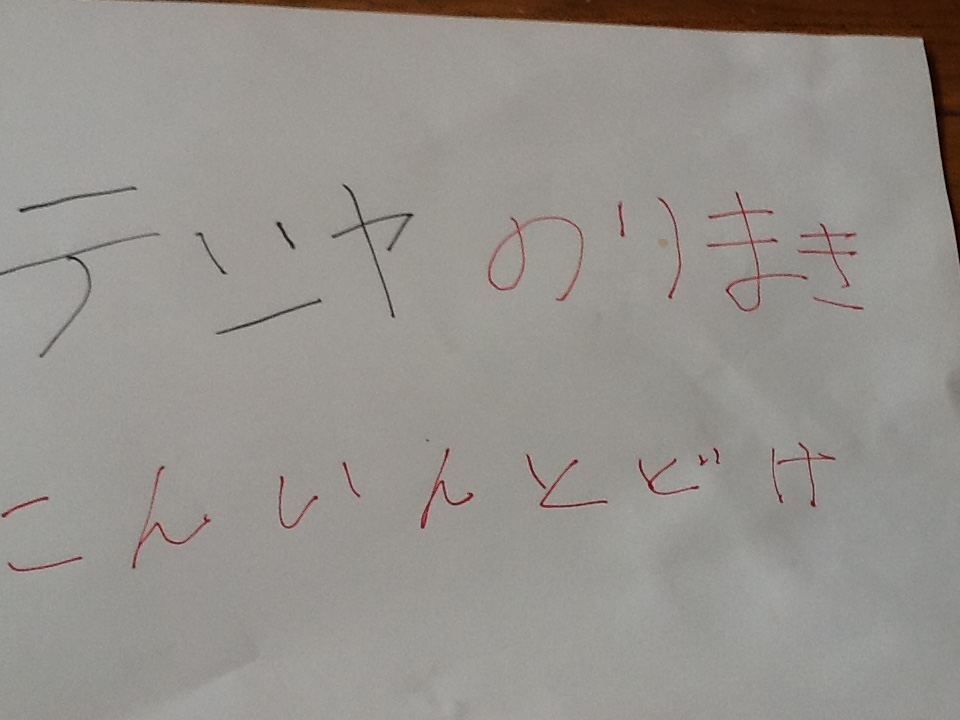 テツヤ のりまき
こんいんとどけ